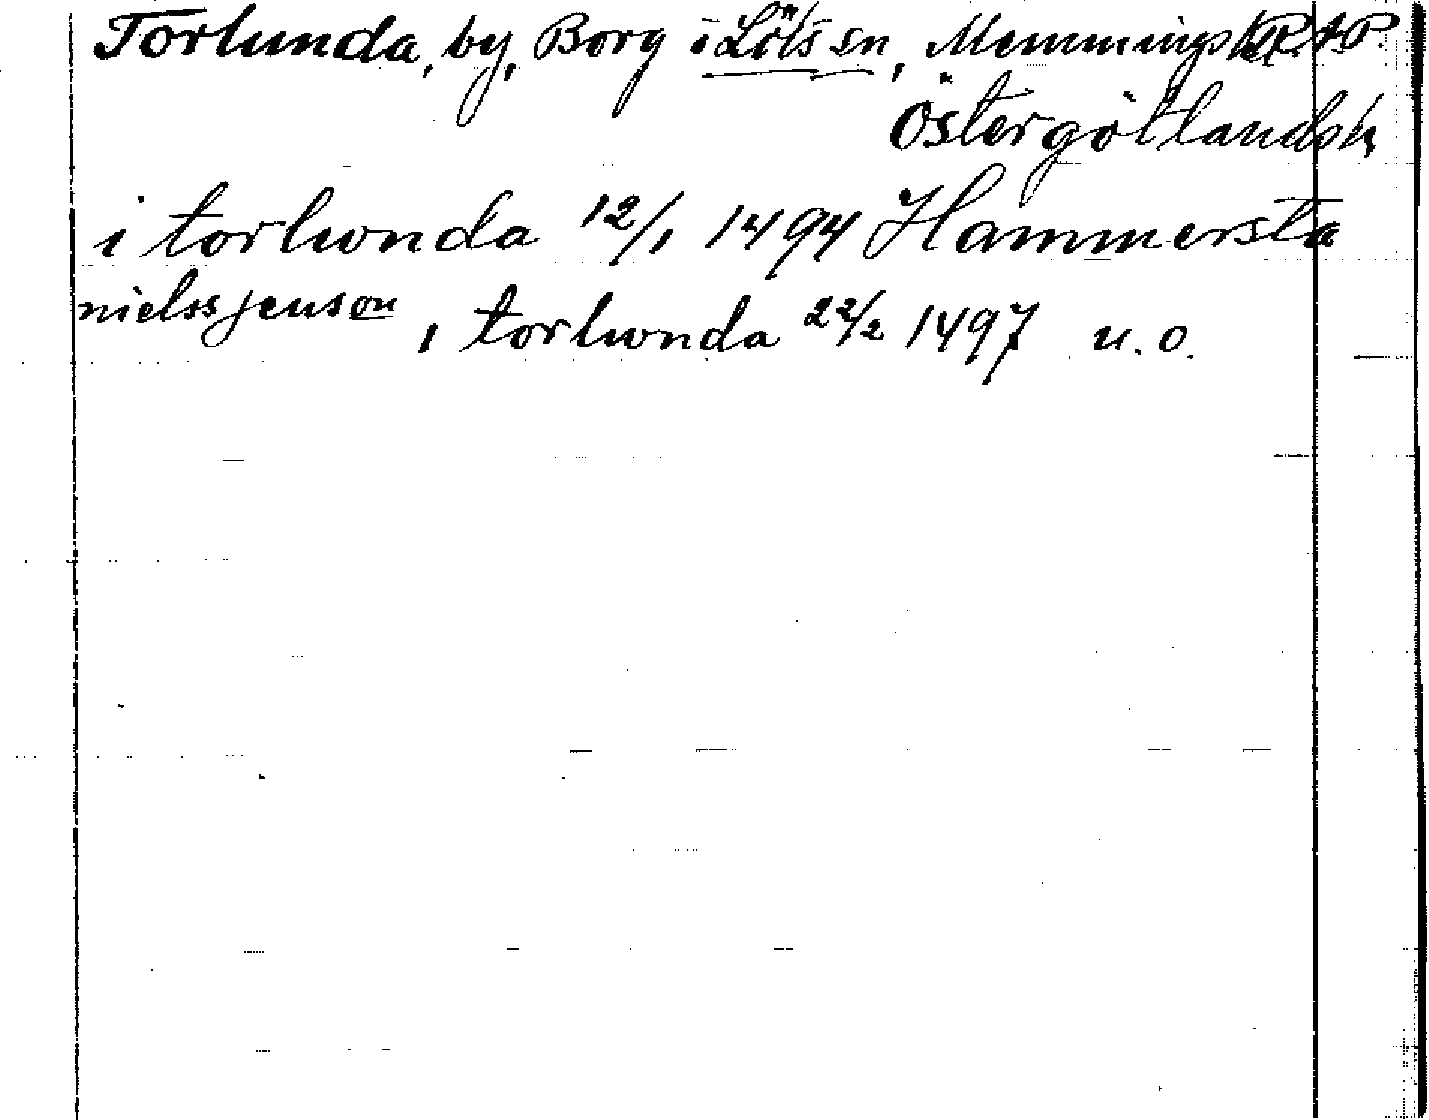 Torlunda, by, Borg i Löts sn, Memmings h. RAP.
Östergötlands l.
i torlwnda 12/1 1494 Hammersta
nielss jenson i torlwnda 22/2 1497 u. o.